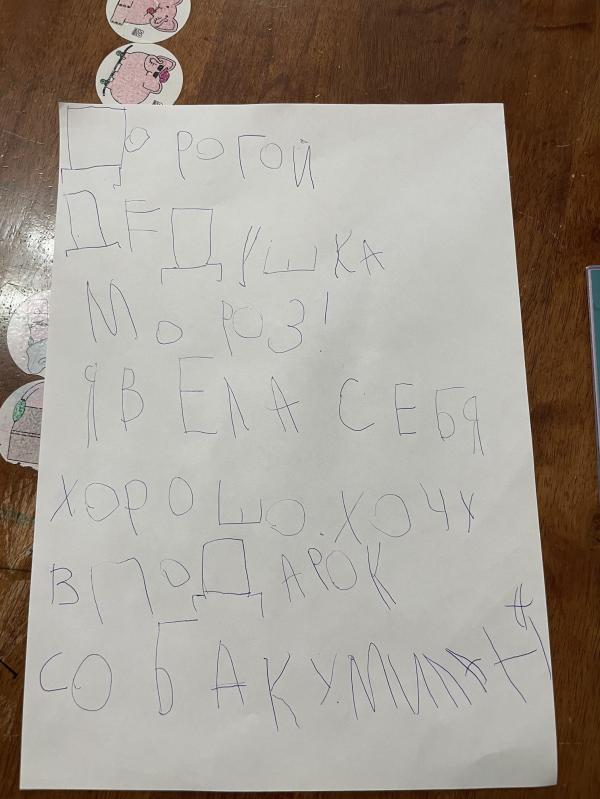 ДОРОГОЙ
ДЕДУШКА
МОРОЗ!
Я ВЕЛА СЕБЯ
ХОРОШО. ХОЧУ
В ПОДАРОК
СОБАКУ. МИЛАНА